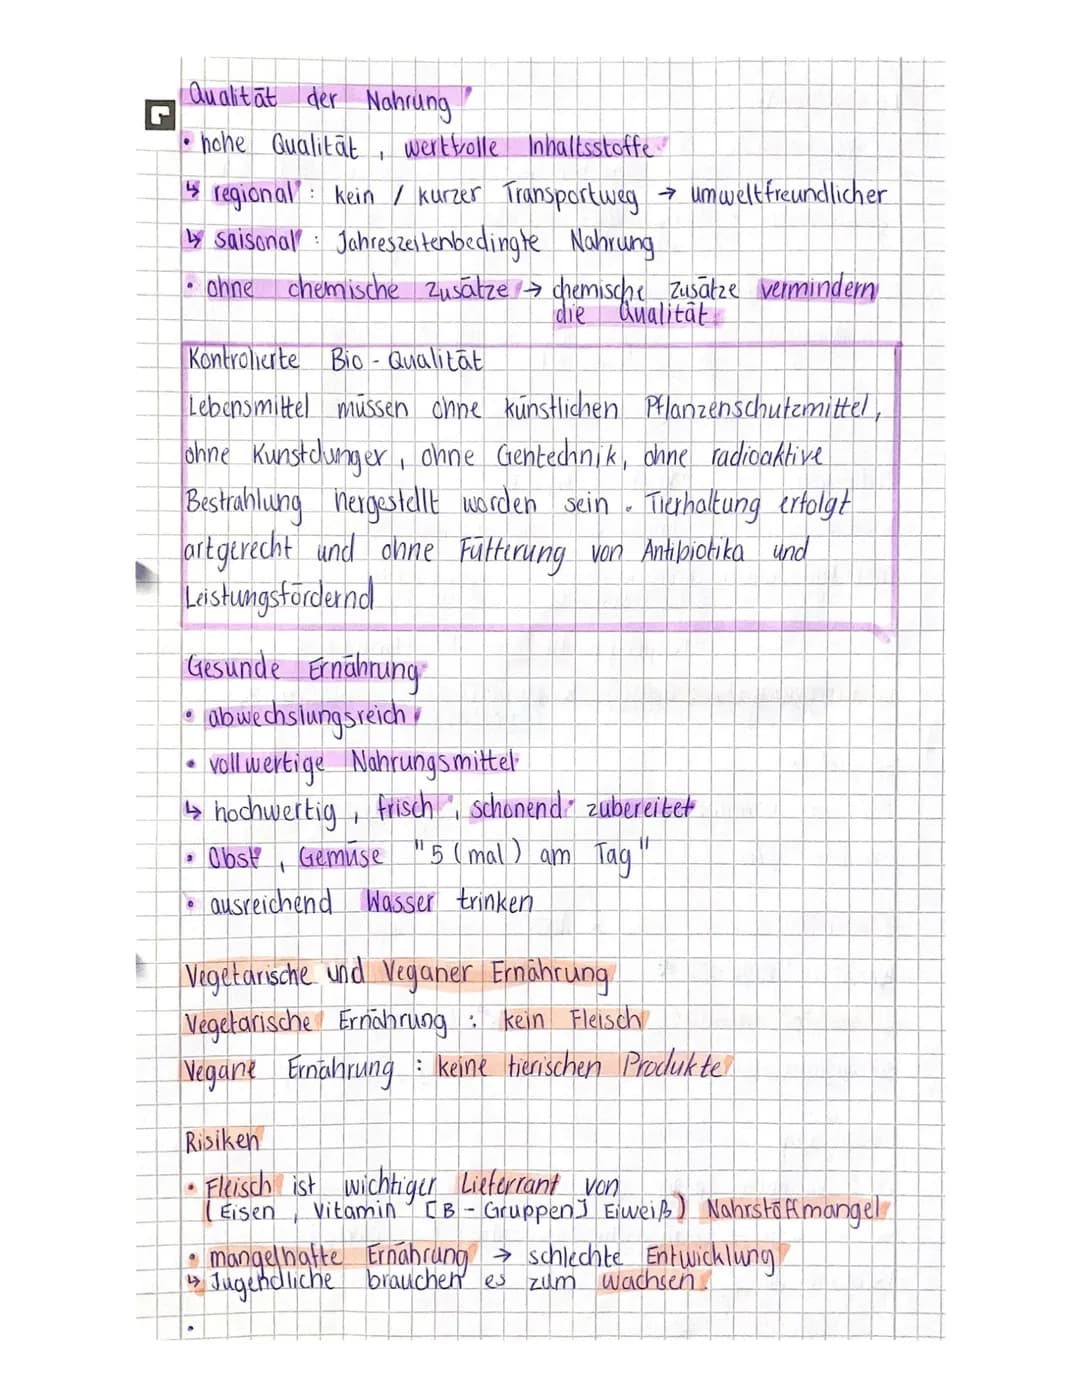 Qualität der Nahrung
• hohe Qualität, wertvolle Inhaltsstoffe
↳ regional: kein / kurzer Transportweg → umweltfreundlicher
↳ saisonal: Jahreszeitenbedingte Nahrung
• ohne chemische Zusätze → chemische Zusätze vermindern
die Qualität
Kontrolierte Bio-Qualität
Lebensmittel müssen ohne künstlichen Pflanzenschutzmittel,
ohne Kunstdunger, ohne Gentechnik, ohne radioaktive
Bestrahlung hergestellt worden sein. Tierhaltung erfolgt
artgerecht und ohne Fütterung von Antibiotika und
Leistungsfördernd
Gesunde Ernährung
• abwechslungsreich
• vollwertige Nahrungsmittel
↳ hochwertig, frisch, schonend zubereitet
• Obst, Gemüse "5 (mal) am Tag"
• ausreichend Wasser trinken
Vegetarische und Veganer Ernährung
Vegetarische Ernährung: kein Fleisch
Vegane Ernährung: keine tierischen Produkte
Risiken
• Fleisch ist wichtiger Lieferrant von
(Eisen, Vitamin [B-Gruppen] Eiweiß) Nahrstöffmangel
• mangelhafte Ernährung → schlechte Entwicklung
↳ Jugendliche brauchen es zum wachsen.
•